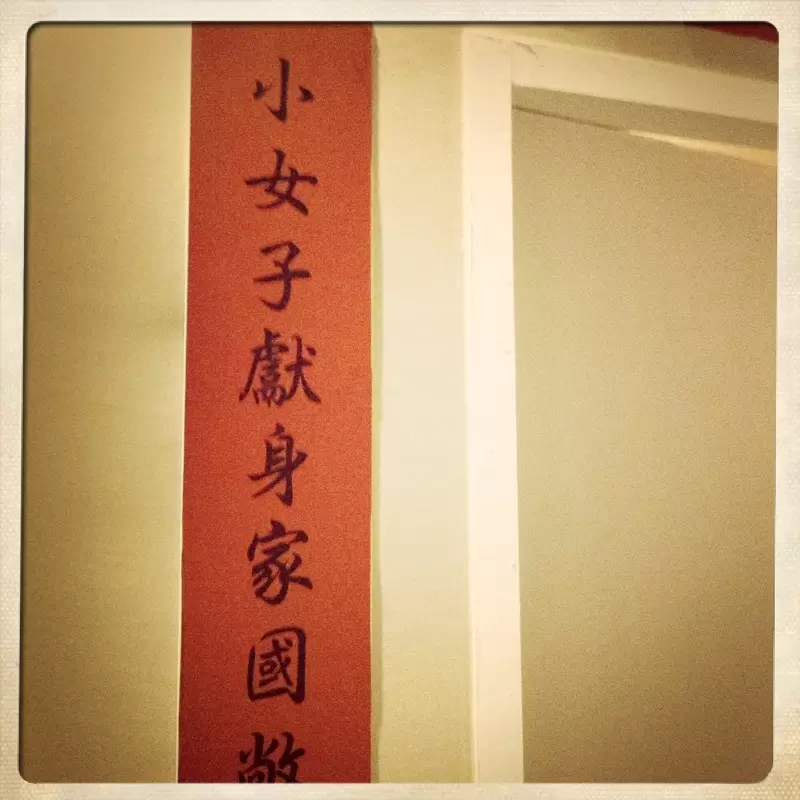 小女子獻身家國敞